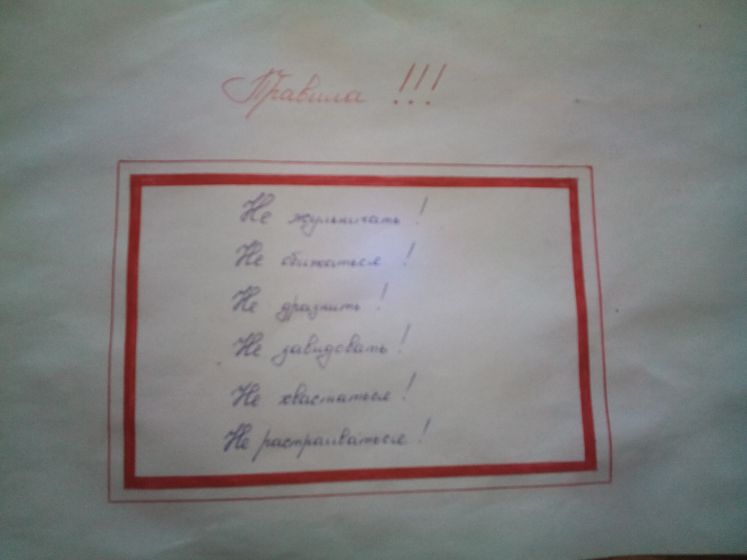 Правила !!!
Не жульничать !
Не обижаться !
Не дразнить !
Не завидовать !
Не хвастаться !
Не растраиваться !